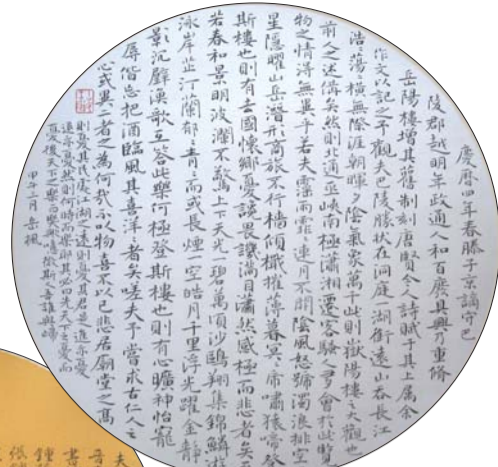 慶曆四年春滕子京謫守巴
陵郡越明年政通人和百廢具興乃重脩
岳陽樓增其舊制刻唐賢今人詩賦于其上屬余
作文以記之予觀夫巴陵勝狀在洞庭一湖銜遠山吞長江
浩〻蕩〻橫無際涯朝暉夕陰氣象萬千此則嶽陽樓之觀也
前人之述備矣然則北通巫峽南極瀟湘遷客騷人多會於此覽
物之情得無異乎若夫霪雨霏〻連月不開陰風怒號濁浪排空
星隱曜山岳潛形商旅不行檣傾檝摧薄暮冥〻虎嘯猿啼登
斯樓也則有去國懷鄉憂讒畏譏滿目蕭然感極而悲者矣至
若春和景明波瀾不驚上下天光一碧萬頃沙鷗翔集錦鱗游
泳岸芷汀蘭郁〻青〻而或長煙一空皓月千里浮光躍金靜
影沉璧漁歌互答此樂何極登斯樓也則有心曠神怡寵
辱偕忘把酒臨風其喜洋〻者矣嗟夫予嘗求古仁人之
心或異二者之為何哉不以物喜不以己悲居廟堂之高
則憂其民處江湖之遠則憂其君是進亦憂
退亦憂然則何時而樂耶其必先天下之憂而
憂後天下之樂而樂噫微斯人吾誰與歸
甲午二月 岳楓
夫
書
鍾
張